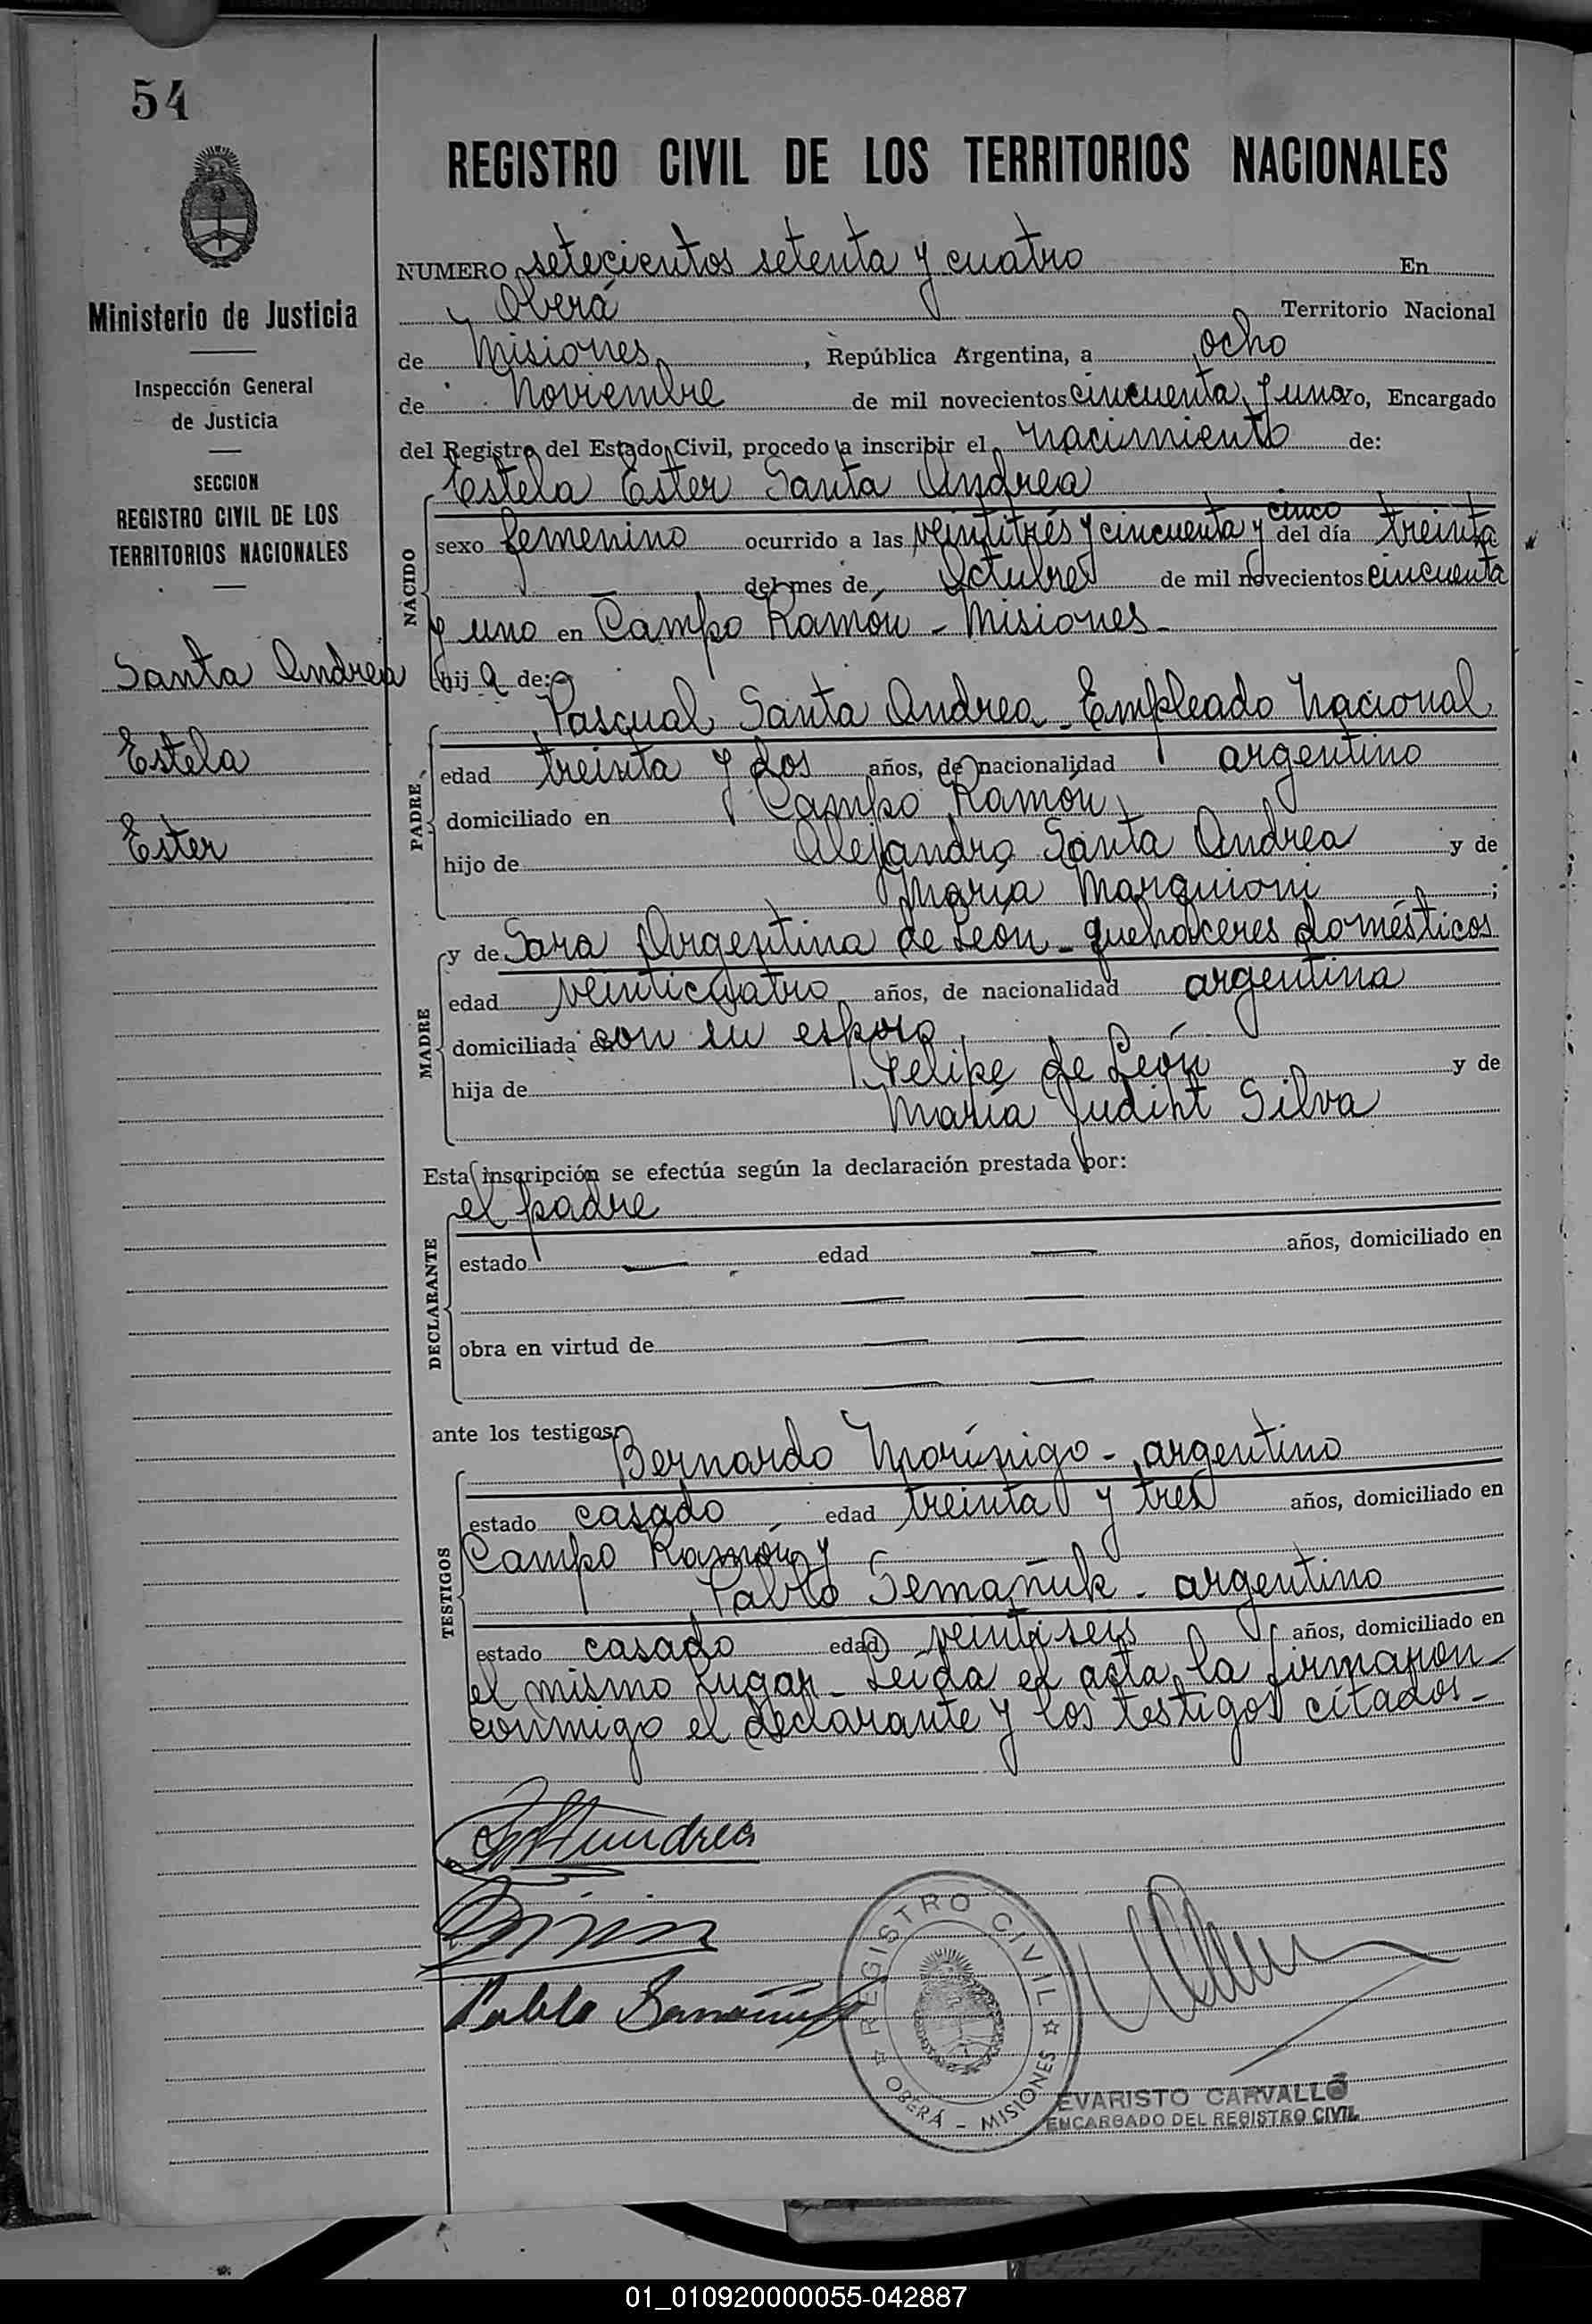 54
REGISTRO CIVIL DE LOS TERRITORIOS NACIONALES
Ministerio de Justicia
Inspección General
de Justicia
SECCION
REGISTRO CIVIL DE LOS
TERRITORIOS NACIONALES
Santa Andrea
Estela
Ester
NUMERO setecientos setenta y cuatro En
Oberá Territorio Nacional
de Misiones, República Argentina, a ocho
de Noviembre de mil novecientos cincuenta y uno yo, Encargado
del Registro del Estado Civil, procedo a inscribir el nacimiento de:
NACIDO
Estela Ester Santa Andrea
sexo femenino ocurrido a las veintitrés y cincuenta y cinco del día treinta
del mes de Octubre de mil novecientos cincuenta
y uno en Campo Ramón - Misiones -
hij a de:
PADRE
Pascual Santa Andrea - Empleado Nacional
edad treinta y dos años, de nacionalidad argentino
domiciliado en Campo Ramón
hijo de Alejandro Santa Andrea y de
María Marquioni ;
MADRE
y de Sara Argentina de León - quehaceres domésticos
edad veinticuatro años, de nacionalidad argentina
domiciliada en con su esposo
hija de Felipe de León y de
María Judiht Silva
Esta inscripción se efectúa según la declaración prestada por:
DECLARANTE
el padre
estado — edad — años, domiciliado en
— —
obra en virtud de — —
— —
ante los testigos:
TESTIGOS
Bernardo Morínigo - argentino
estado casado edad treinta y tres años, domiciliado en
Campo Ramón y
Pablo Semañuk - argentino
estado casado edad veintiseis años, domiciliado en
el mismo lugar - Leída el acta, la firmaron
conmigo el declarante y los testigos citados -
Pablo
REGISTRO CIVIL
OBERÁ - MISIONES
EVARISTO CARVALLO
ENCARGADO DEL REGISTRO CIVIL
01_010920000055-042887